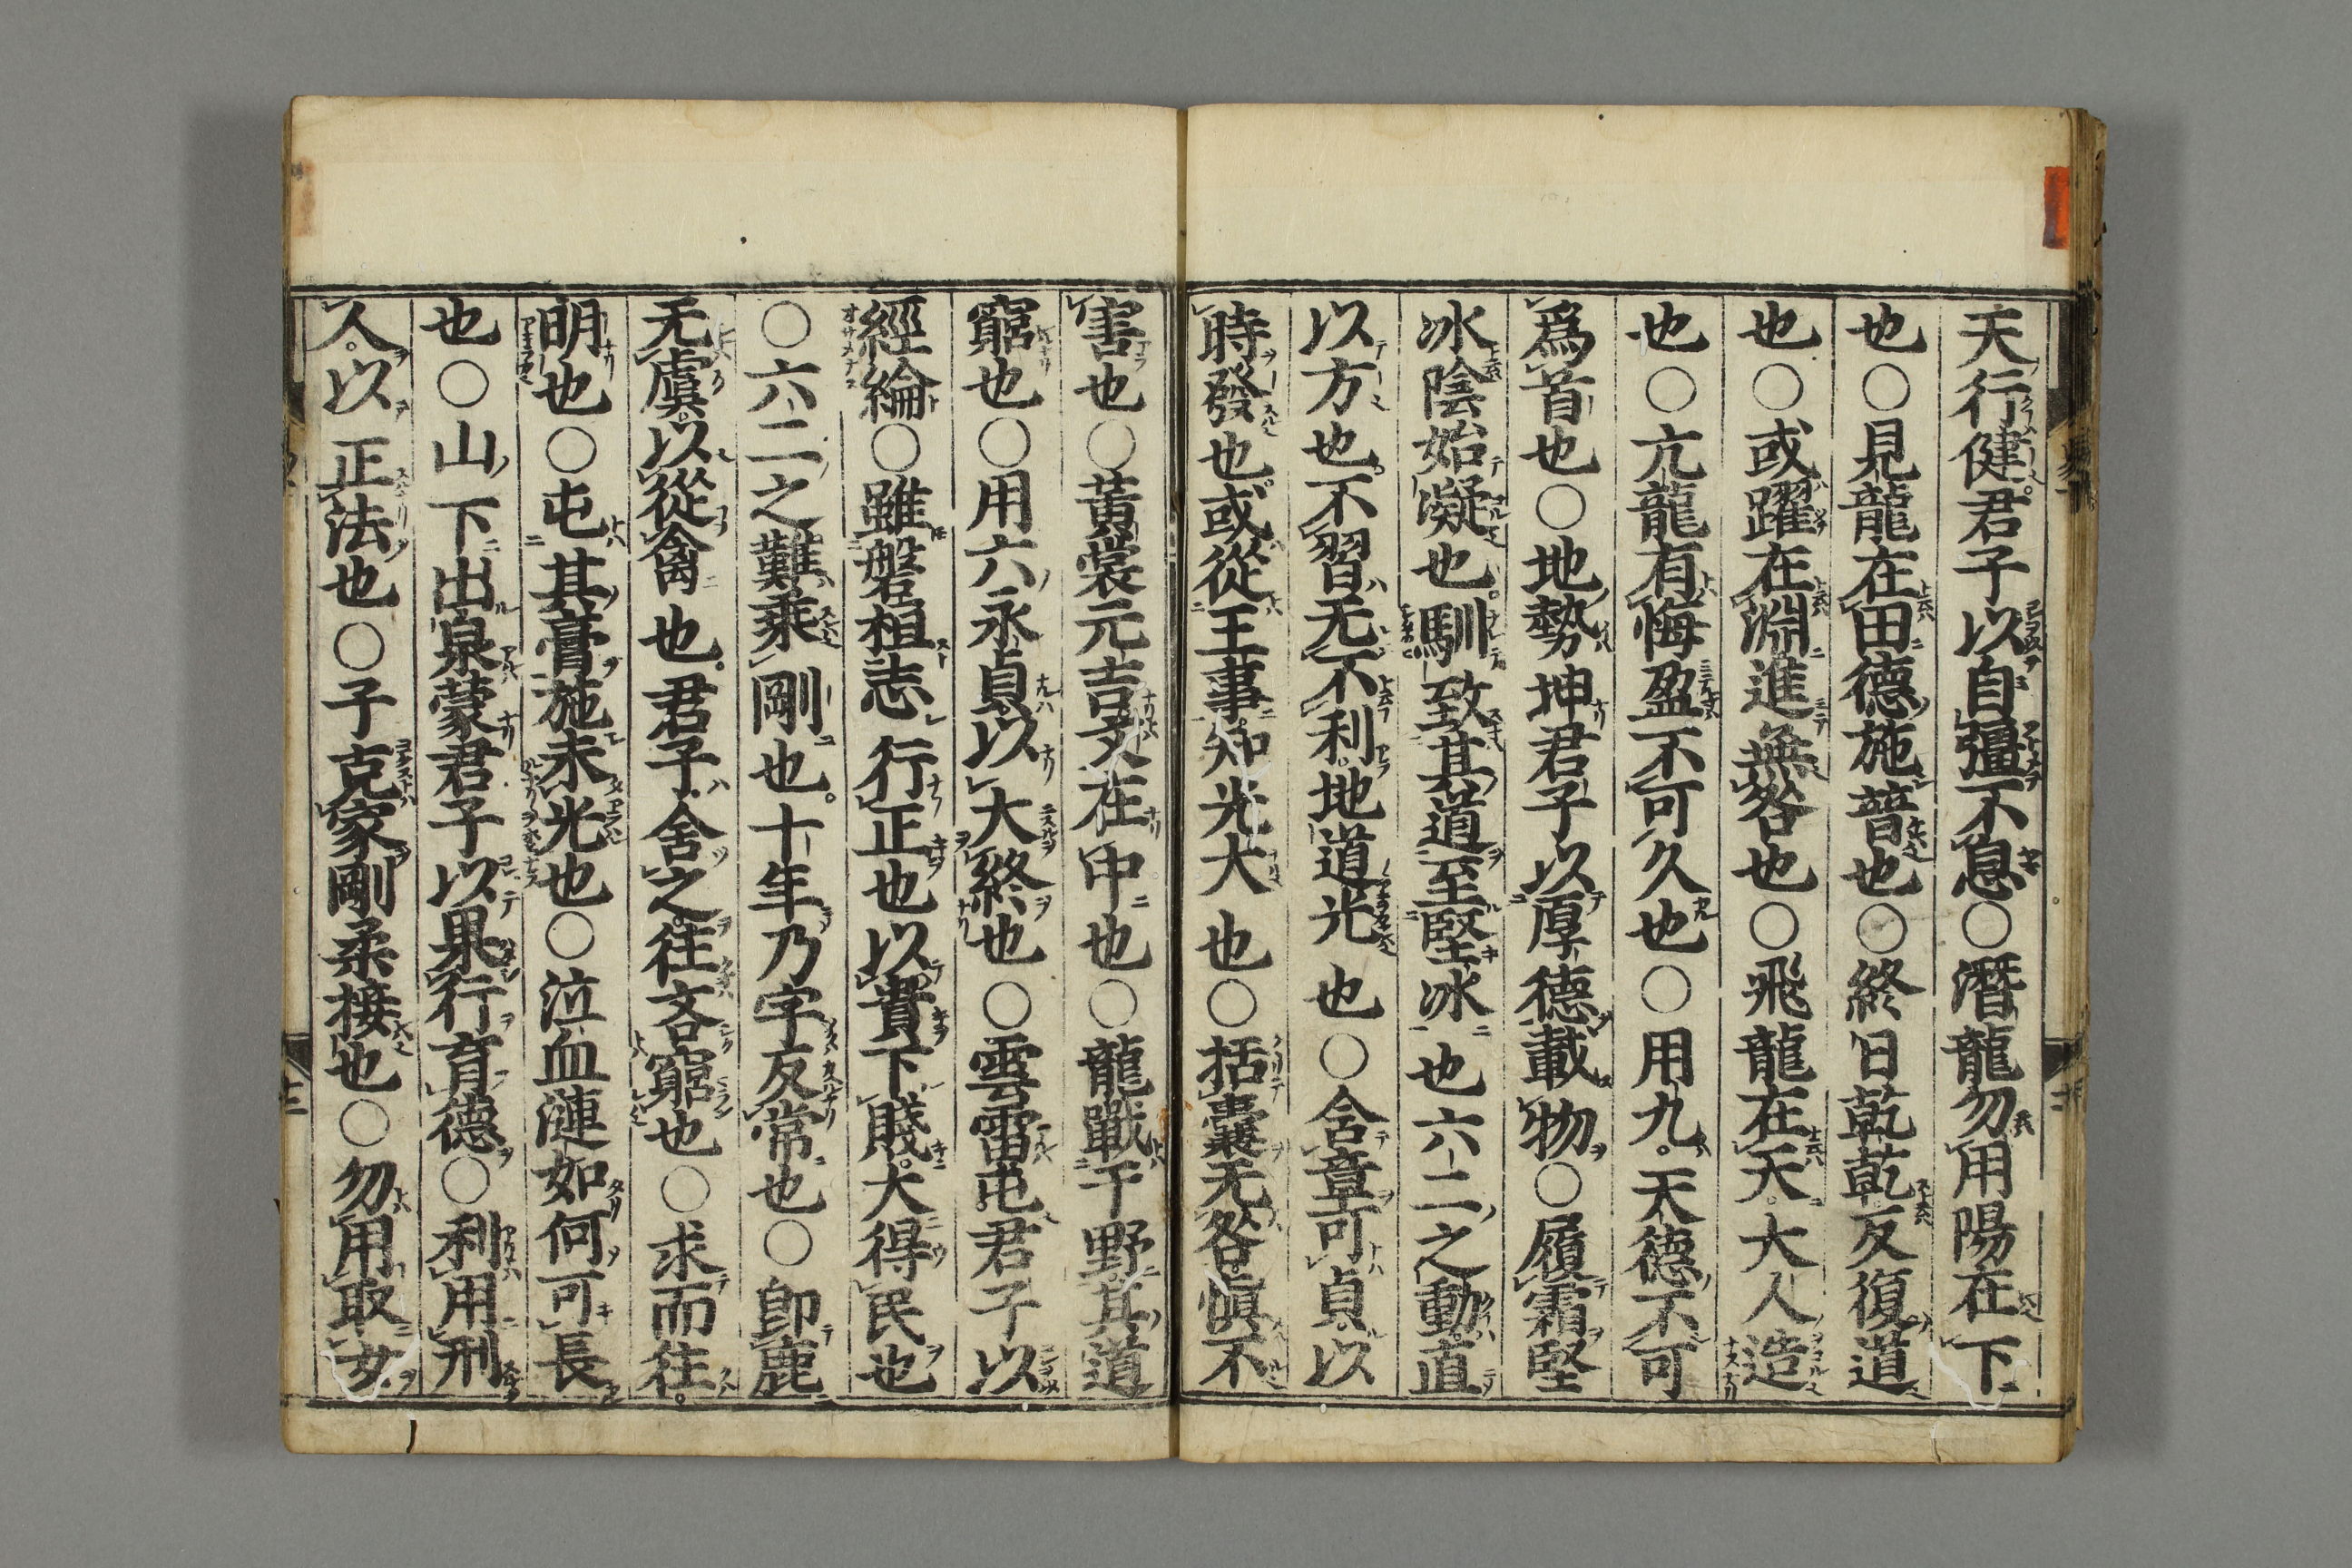 天行健君子以自彊不息○潛龍勿用陽在下
也○見龍在田德施普也○終日乾乾反復道
也○或躍在淵進無咎也○飛龍在天大人造
也○亢龍有悔盈不可久也○用九天德不可
爲首也○地勢坤君子以厚德載物○履霜堅
冰陰始凝也馴致其道至堅冰也六二之動直
以方也不習无不利地道光也○含章可貞以
時發也或從王事知光大也○括囊无咎愼不
害也○黃裳元吉文在中也○龍戰于野其道
窮也○用六永貞以大終也○雲雷屯君子以
經綸○雖磐桓志行正也以貴下賤大得民也
○六二之難乘剛也十年乃字反常也○卽鹿
无虞以從禽也君子舍之往吝窮也○求而往
明也○屯其膏施未光也○泣血漣如何可長
也○山下出泉蒙君子以果行育德○利用刑
人以正法也○子克家剛柔接也○勿用取女